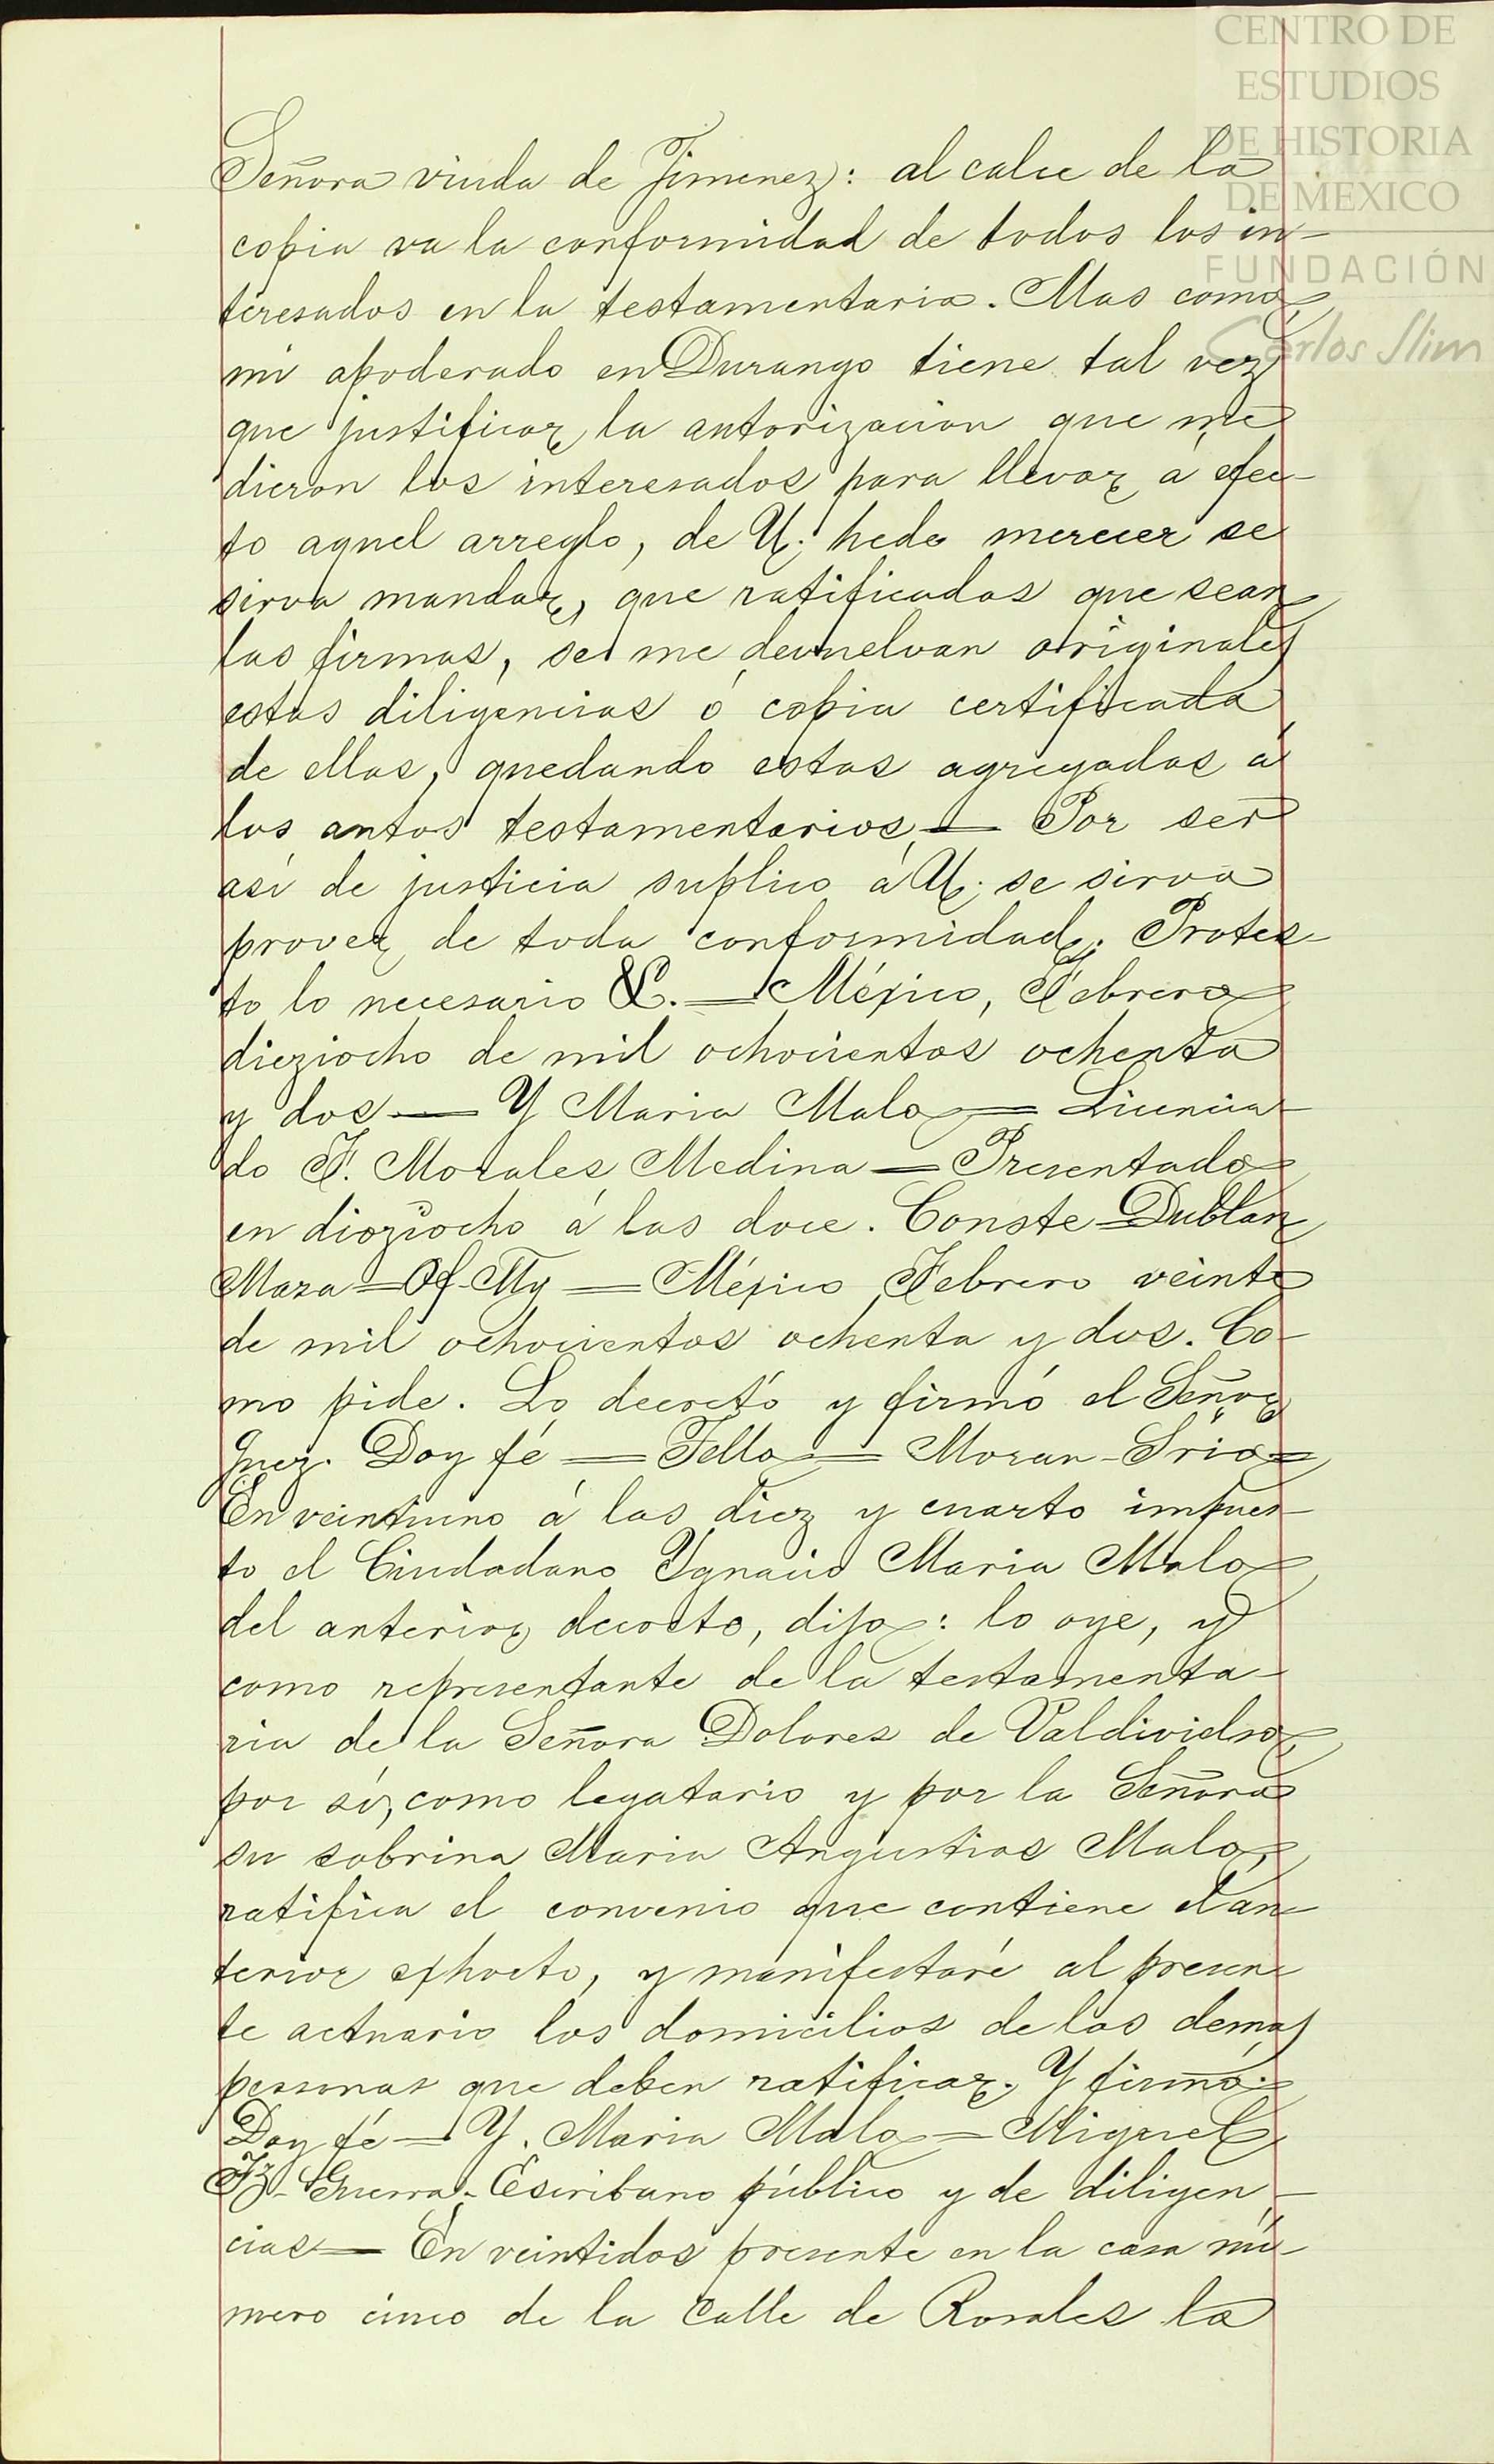 CENTRO DE
ESTUDIOS
DE HISTORIA
DE MEXICO
FUNDACIÓN
Carlos Slim
Señora viuda de Jimenez: al calce de la
copia va la conformidad de todos los in-
teresados en la testamentaria. Mas como
mi apoderado en Durango tiene tal vez
que justificar la autorizacion que me
dieron los interesados para llevar á efec-
to aquel arreglo, de U. hede merecer se
sirva mandar, que ratificadas que sean
las firmas, se me devuelvan originales
estas diligencias ó copia certificada
de ellas, quedando estas agregadas á
los autos testamentarios. — Por ser
así de justicia suplico á U. se sirva
proveer de toda conformidad. Protes-
to lo necesario &. — México, Febrero
dieziocho de mil ochocientos ochenta
y dos — Y Maria Malo — Licencia-
do F. Morales Medina — Presentado
en dieziocho á las doce. Conste Dublan
Maza — Of. My — México Febrero veinte
de mil ochocientos ochenta y dos. Co-
mo pide. Lo decretó y firmó el Señor
Juez. Doy fé — Tello — Moran - Srio —
En veintiuno á las diez y cuarto impues-
to el Ciudadano Ygnacio Maria Malo
del anterior decreto, dijo: lo oye, y
como representante de la testamenta-
ria de la Señora Dolores de Valdivielso,
por sí, como legatario y por la Señora
su sobrina Maria Angustias Malo,
ratifica el convenio que contiene el an-
terior exhorto, y manifestará al presen-
te actuario los domicilios de las demas
personas que deben ratificar. Y firmó.
Doy fé — Y. Maria Malo — Miguel
Fz. Guerra. Escribano público y de diligen-
cias — En veintidos presente en la casa nú-
mero cinco de la Calle de Rosales la